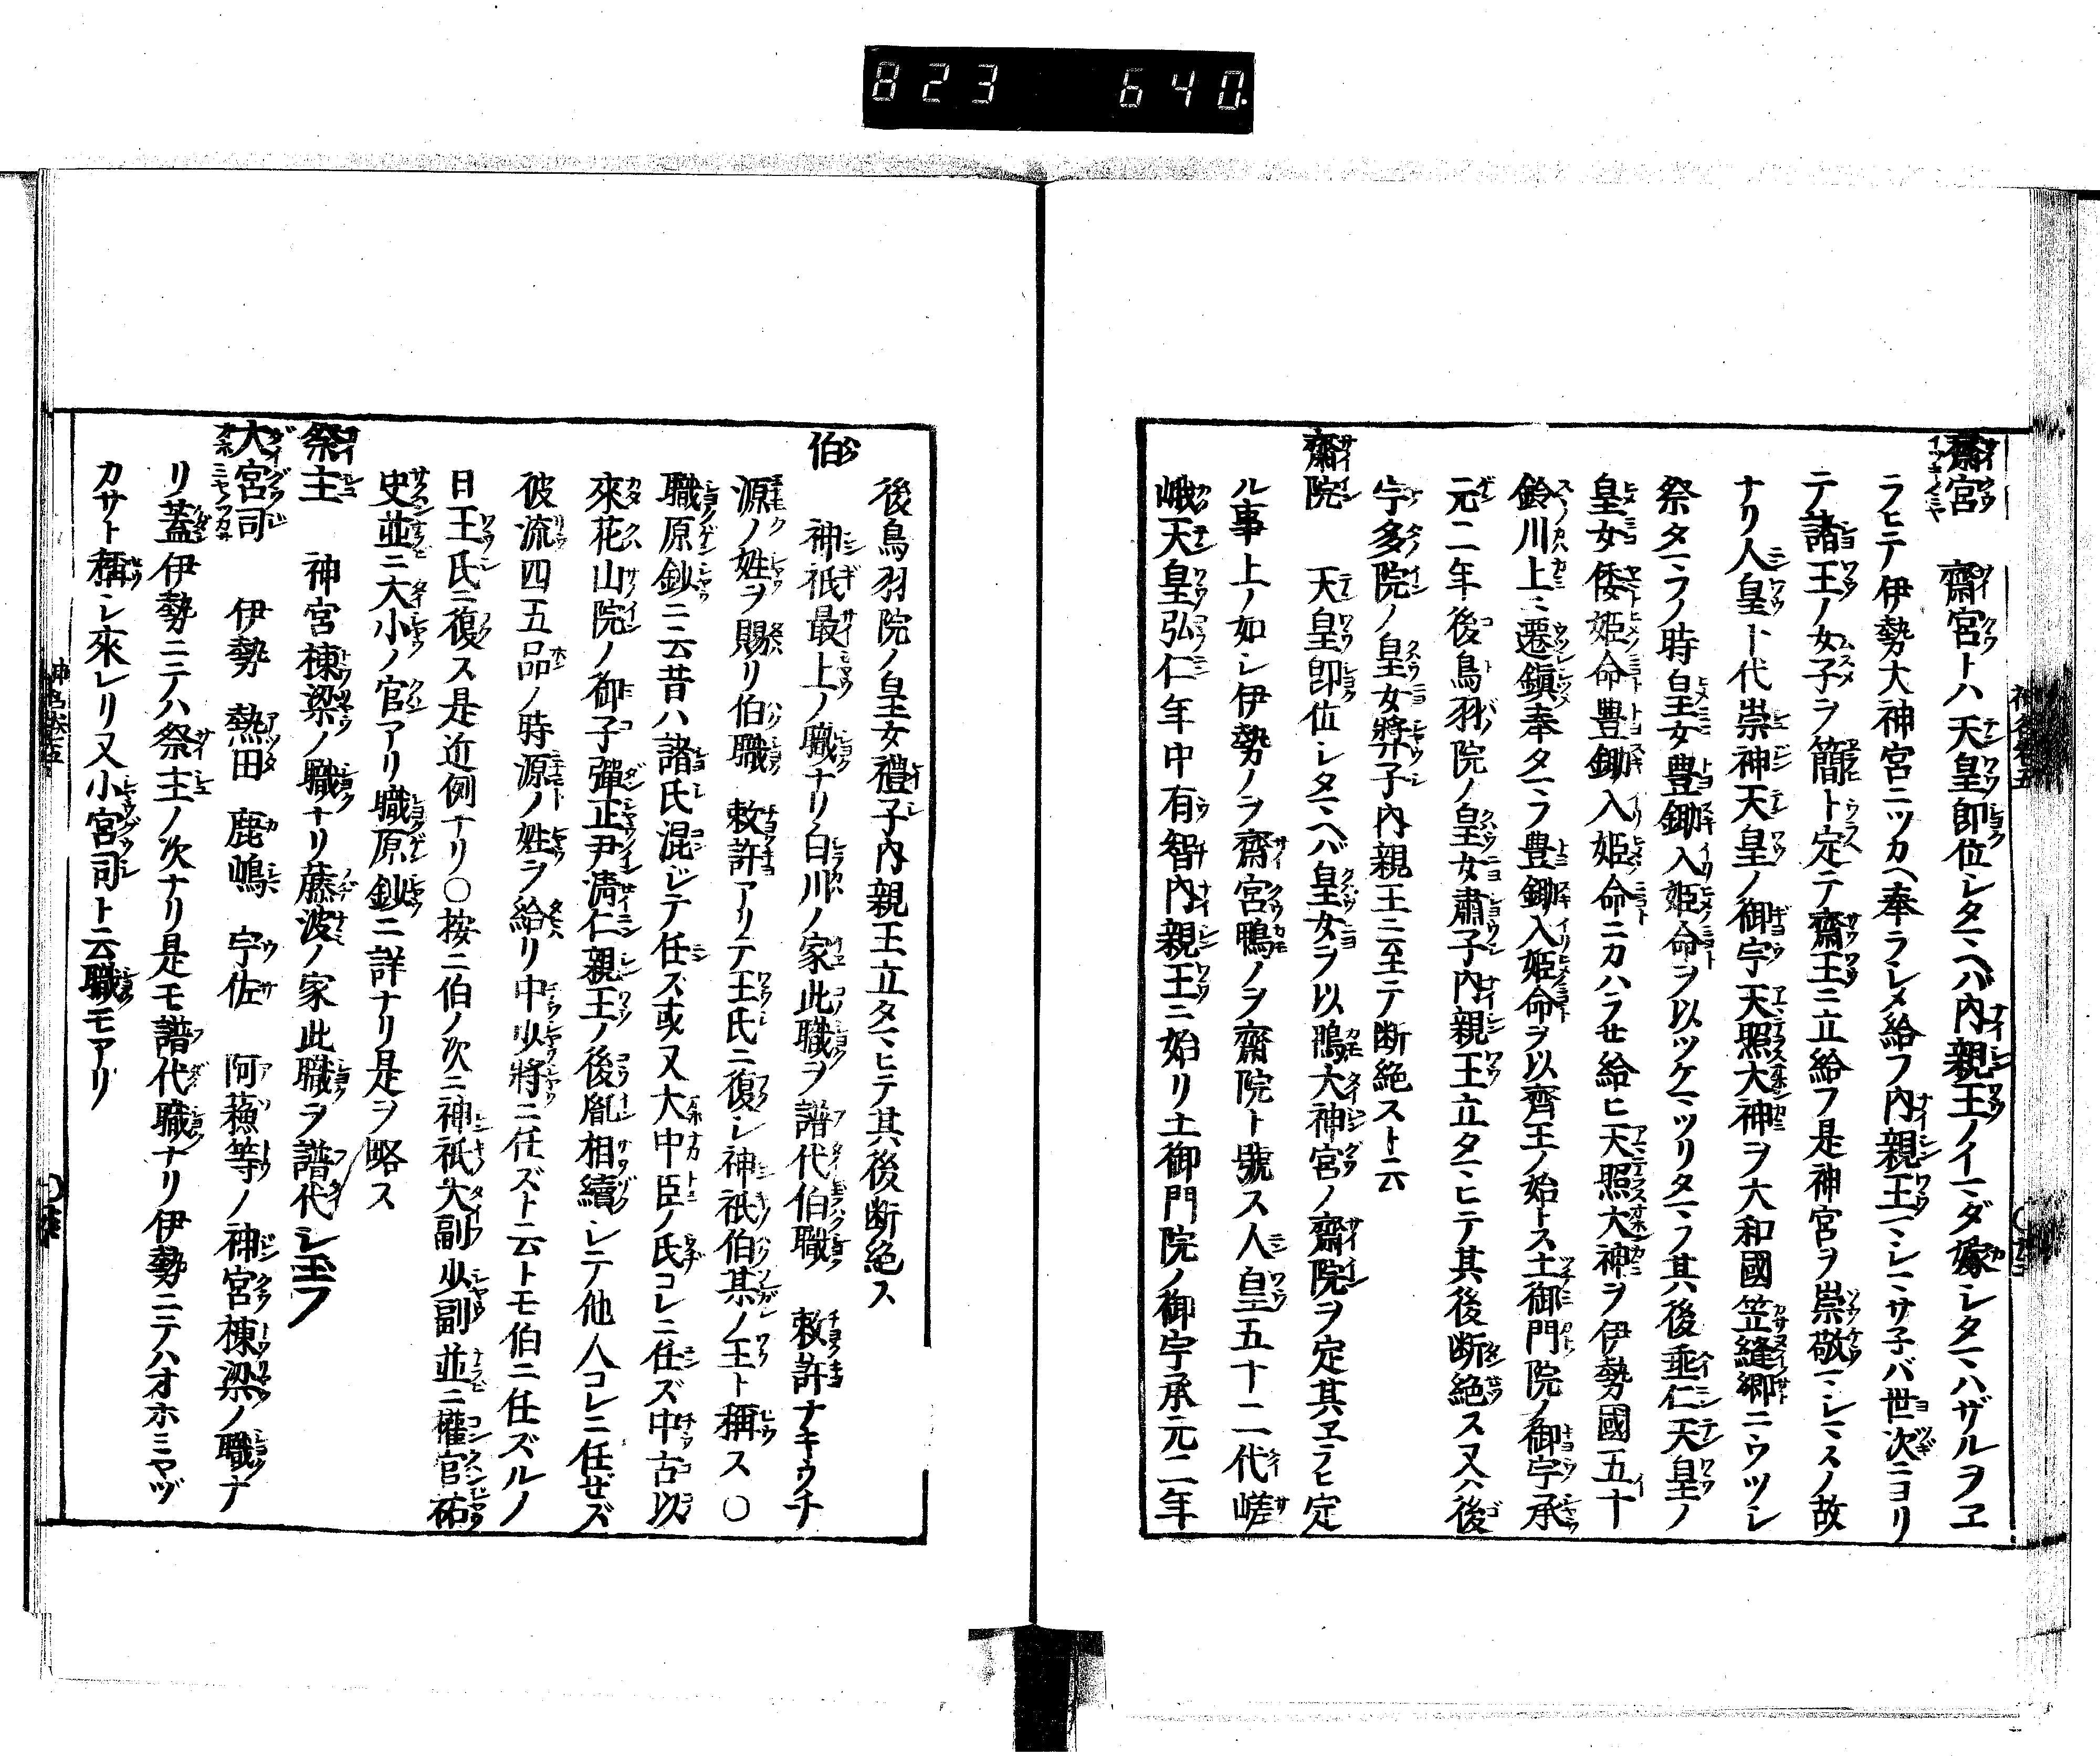 823 640.
齋宮 齋宮トハ 天皇即位シタマヘバ内親王ノイマダ嫁シタマハザルヲヱ
ラヒテ伊勢大神宮ニツカヘ奉ラシメ給フ内親王マシマサ子バ世次ニヨリ
テ諸王ノ女子ヲ簡ト定テ齋王ニ立給フ是神宮ヲ崇敬マシマスノ故
ナリ人皇十代崇神天皇ノ御宇天照大神ヲ大和國笠縫郷ニウツシ
祭タマフノ時皇女豊鋤入姫命ヲ以ツケマツリタマフ其後垂仁天皇ノ
皇女倭姫命豊鋤入姫命ニカハラせ給ヒ天照大神ヲ伊勢國五十
鈴川上ニ遷鎭奉タマフ豊鋤入姫命ヲ以齊王ノ始トス土御門院ノ御宇承
元二年後鳥羽院ノ皇女肅子内親王立タマヒテ其後断絶ス又ハ後
宇多院ノ皇女弉子内親王ニ至テ断絶スト云
齋院 天皇即位シタマヘバ皇女ヲ以鴨大神宮ノ齋院ヲ定其ヱラヒ定
ル事上ノ如シ伊勢ノヲ齋宮鴨ノヲ齋院ト號ス人皇五十二代嵯
峨天皇弘仁年中有智内親王ニ始リ土御門院ノ御宇承元二年
後鳥羽院ノ皇女禮子内親王立タマヒテ其後断絶ス
伯 神祇最上ノ職ナリ白川ノ家此職ヲ譜代伯職 敕許ナキウチ
源ノ姓ヲ賜リ伯職 敕許アリテ王氏ニ復シ神祇伯某ノ王ト稱ス○
職原鈔ニ云昔ハ諸氏混じテ任ス或又大中臣ノ氏コレニ任ズ中古以
來花山院ノ御子彈正尹清仁親王ノ後胤相續シテ他人コレニ任ぜズ
彼流四五品ノ時源ノ姓ヲ給リ中少將ニ任ズト云トモ伯ニ任ズルノ
日王氏ニ復ス是近例ナリ○按ニ伯ノ次ニ神祇大副少副並ニ權官祐
史並ニ大小ノ官アリ職原鈔ニ詳ナリ是ヲ略ス
祭主 神宮棟梁ノ職ナリ藤波ノ家此職ヲ譜代シ玉フ
大宮司 伊勢 熱田 鹿嶋 宇佐 阿蘓等ノ神宮棟梁ノ職ナ
リ蓋伊勢ニテハ祭主ノ次ナリ是モ譜代職ナリ伊勢ニテハオホミヤヅ
カサト稱シ來レリ又小宮司ト云職モアリ